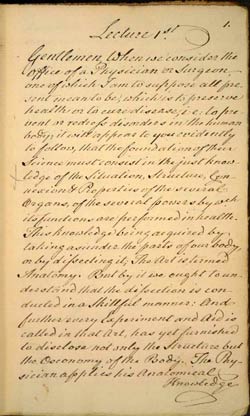 1.
Lecture 1.st
Gentlemen, When we consider the
office of a Physician or Surgeon
one of which I am to suppose all pre
sent mean to be; which is to preserve
health or to cure disease, i.e. to pre
vent or redress disorders in the human
body; it will appear to you evidently
to follow, that the foundation of their
Science must consist in the just know
ledge of the Situation, Structure, Con
nexion & Properties of the several
Organs, of the several powers by wch
its functions are performed in health.
This knowledge being acquired by
taking asunder the parts of our body
or by dissecting it; The Art is termed
Anatomy. But by it we ought to un
derstand that the dissection is con
ducted in a Skillful manner: And
further every Experiment and Aid is
called in that Art, has yet furnished
to disclose not only the Structure but
the Oeconomy of the Body. The Phy
sician applies his Anatomical
Knowledge